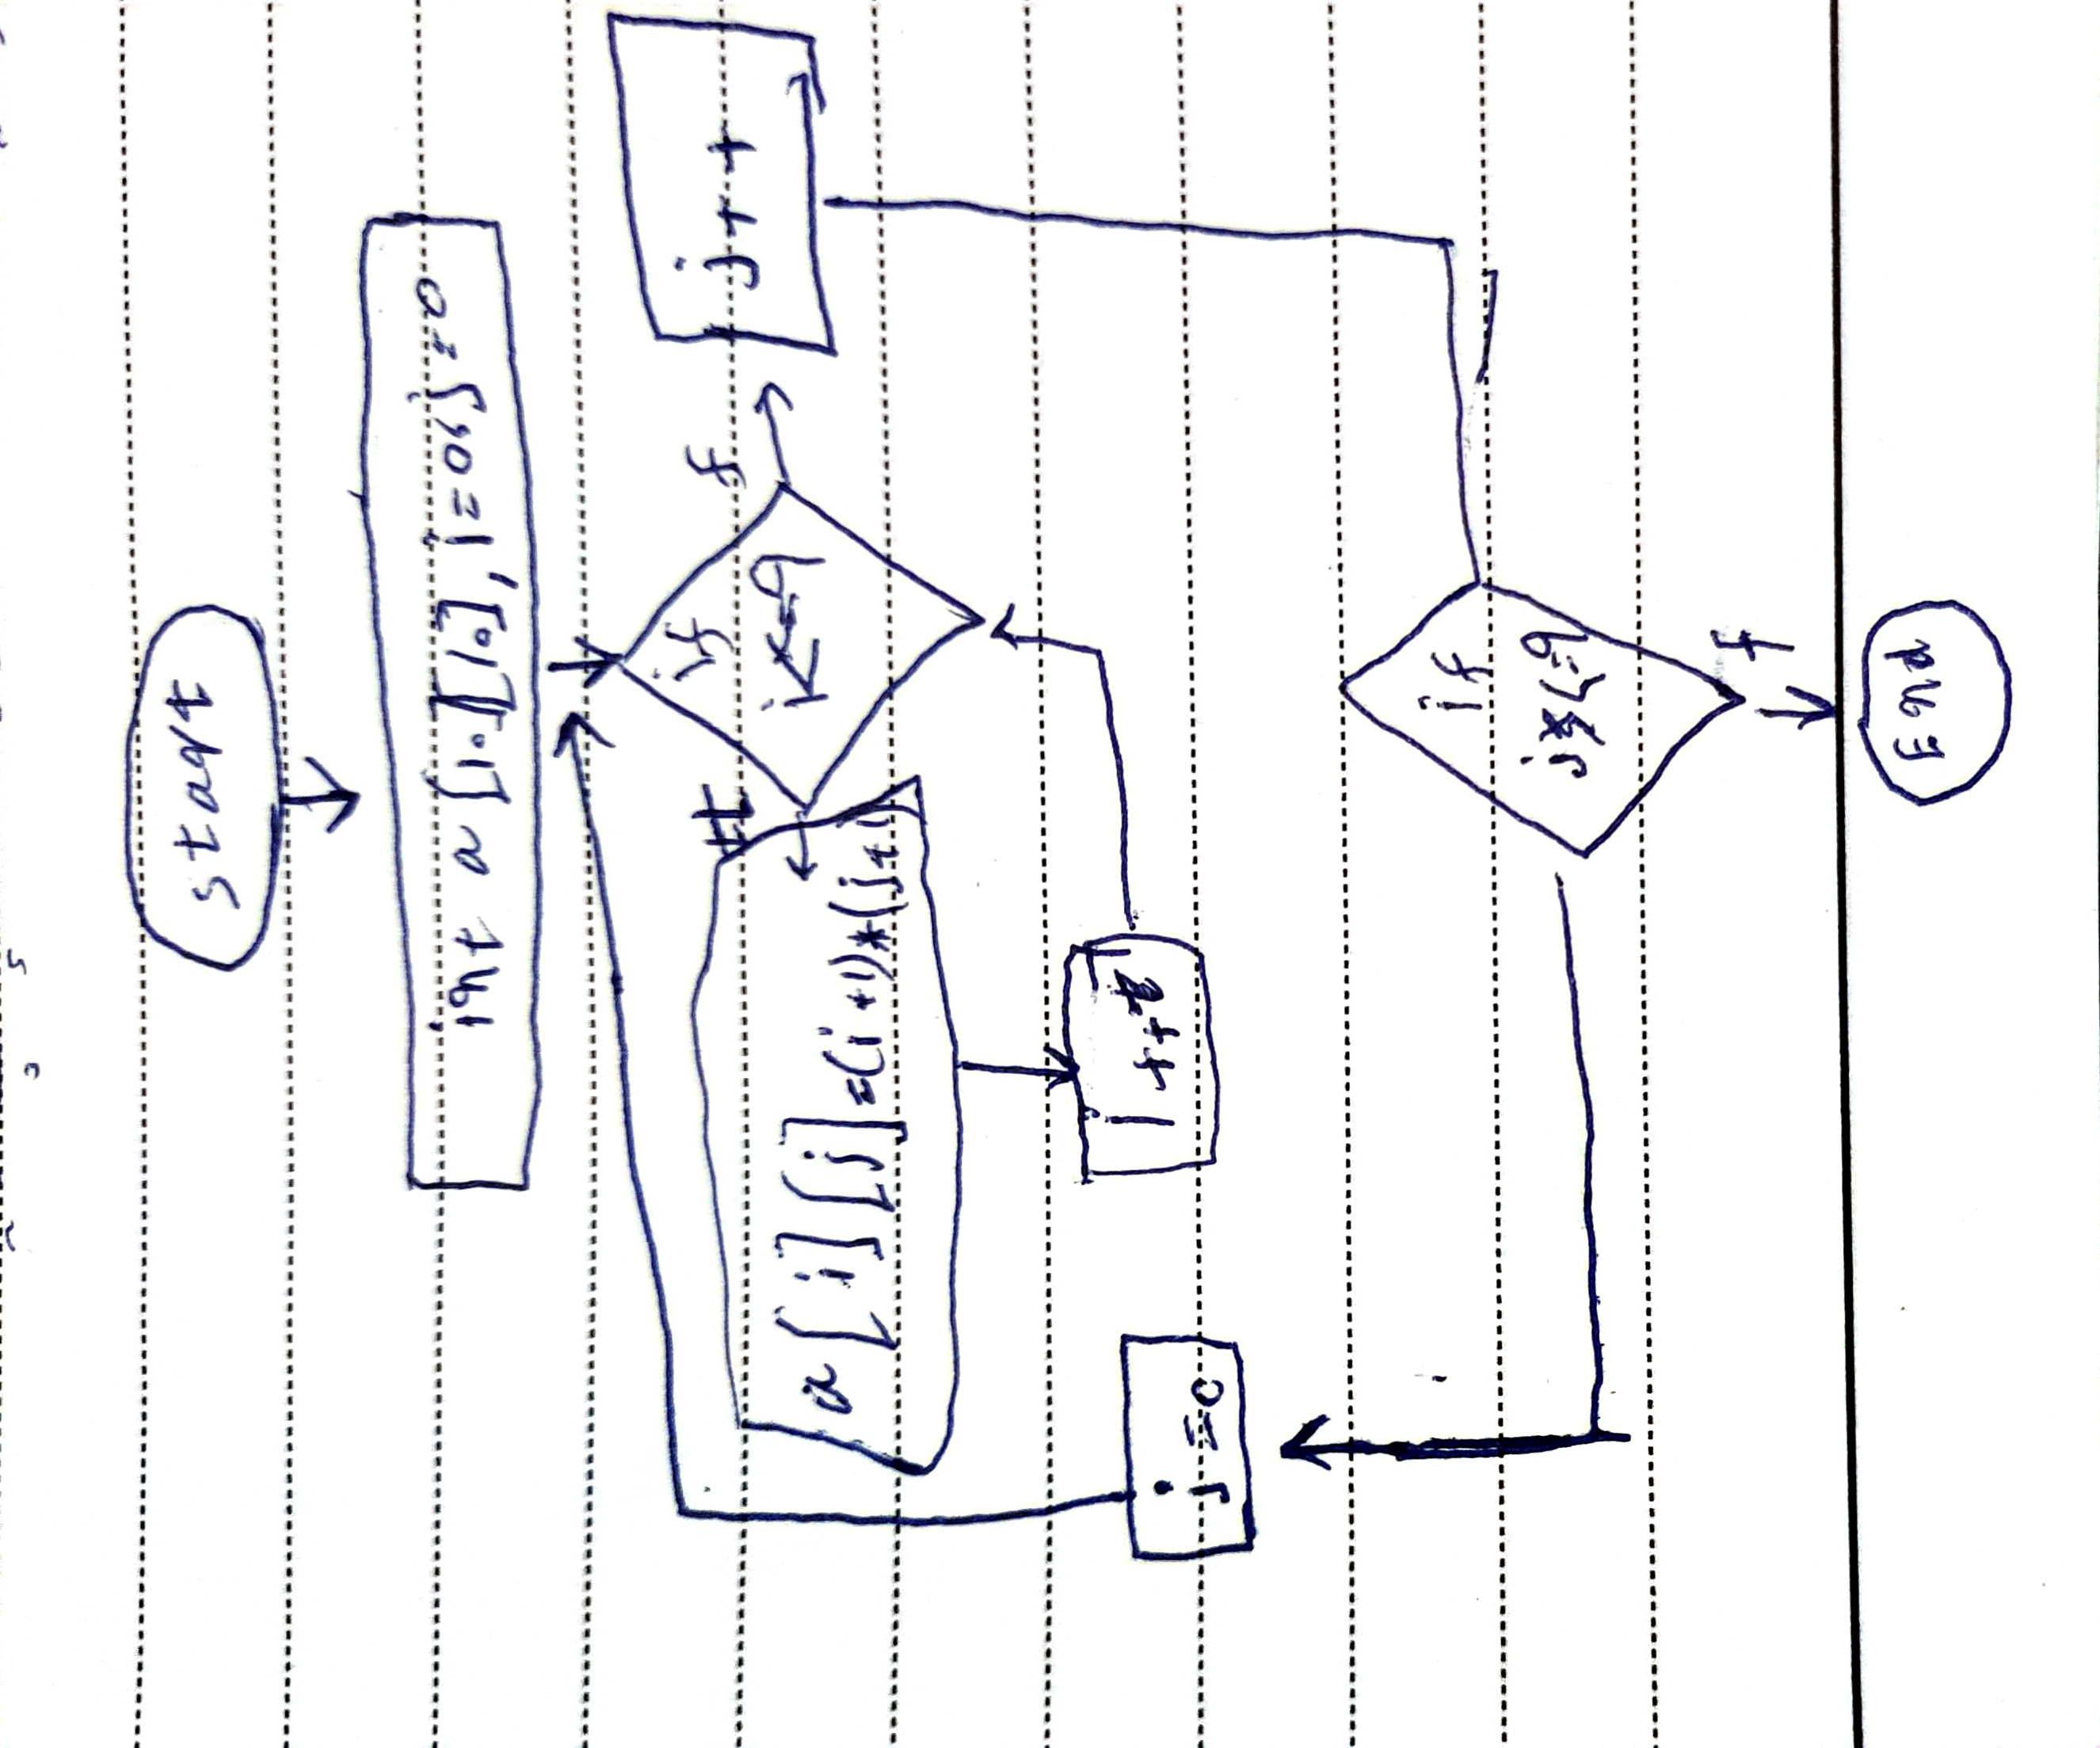 start
int a [10][10], i=0, j=0
if
i<=9
t
f
j++
a[i][j]=(i+1)*(j+1)
i++
j=0
if
j<=9
f
End